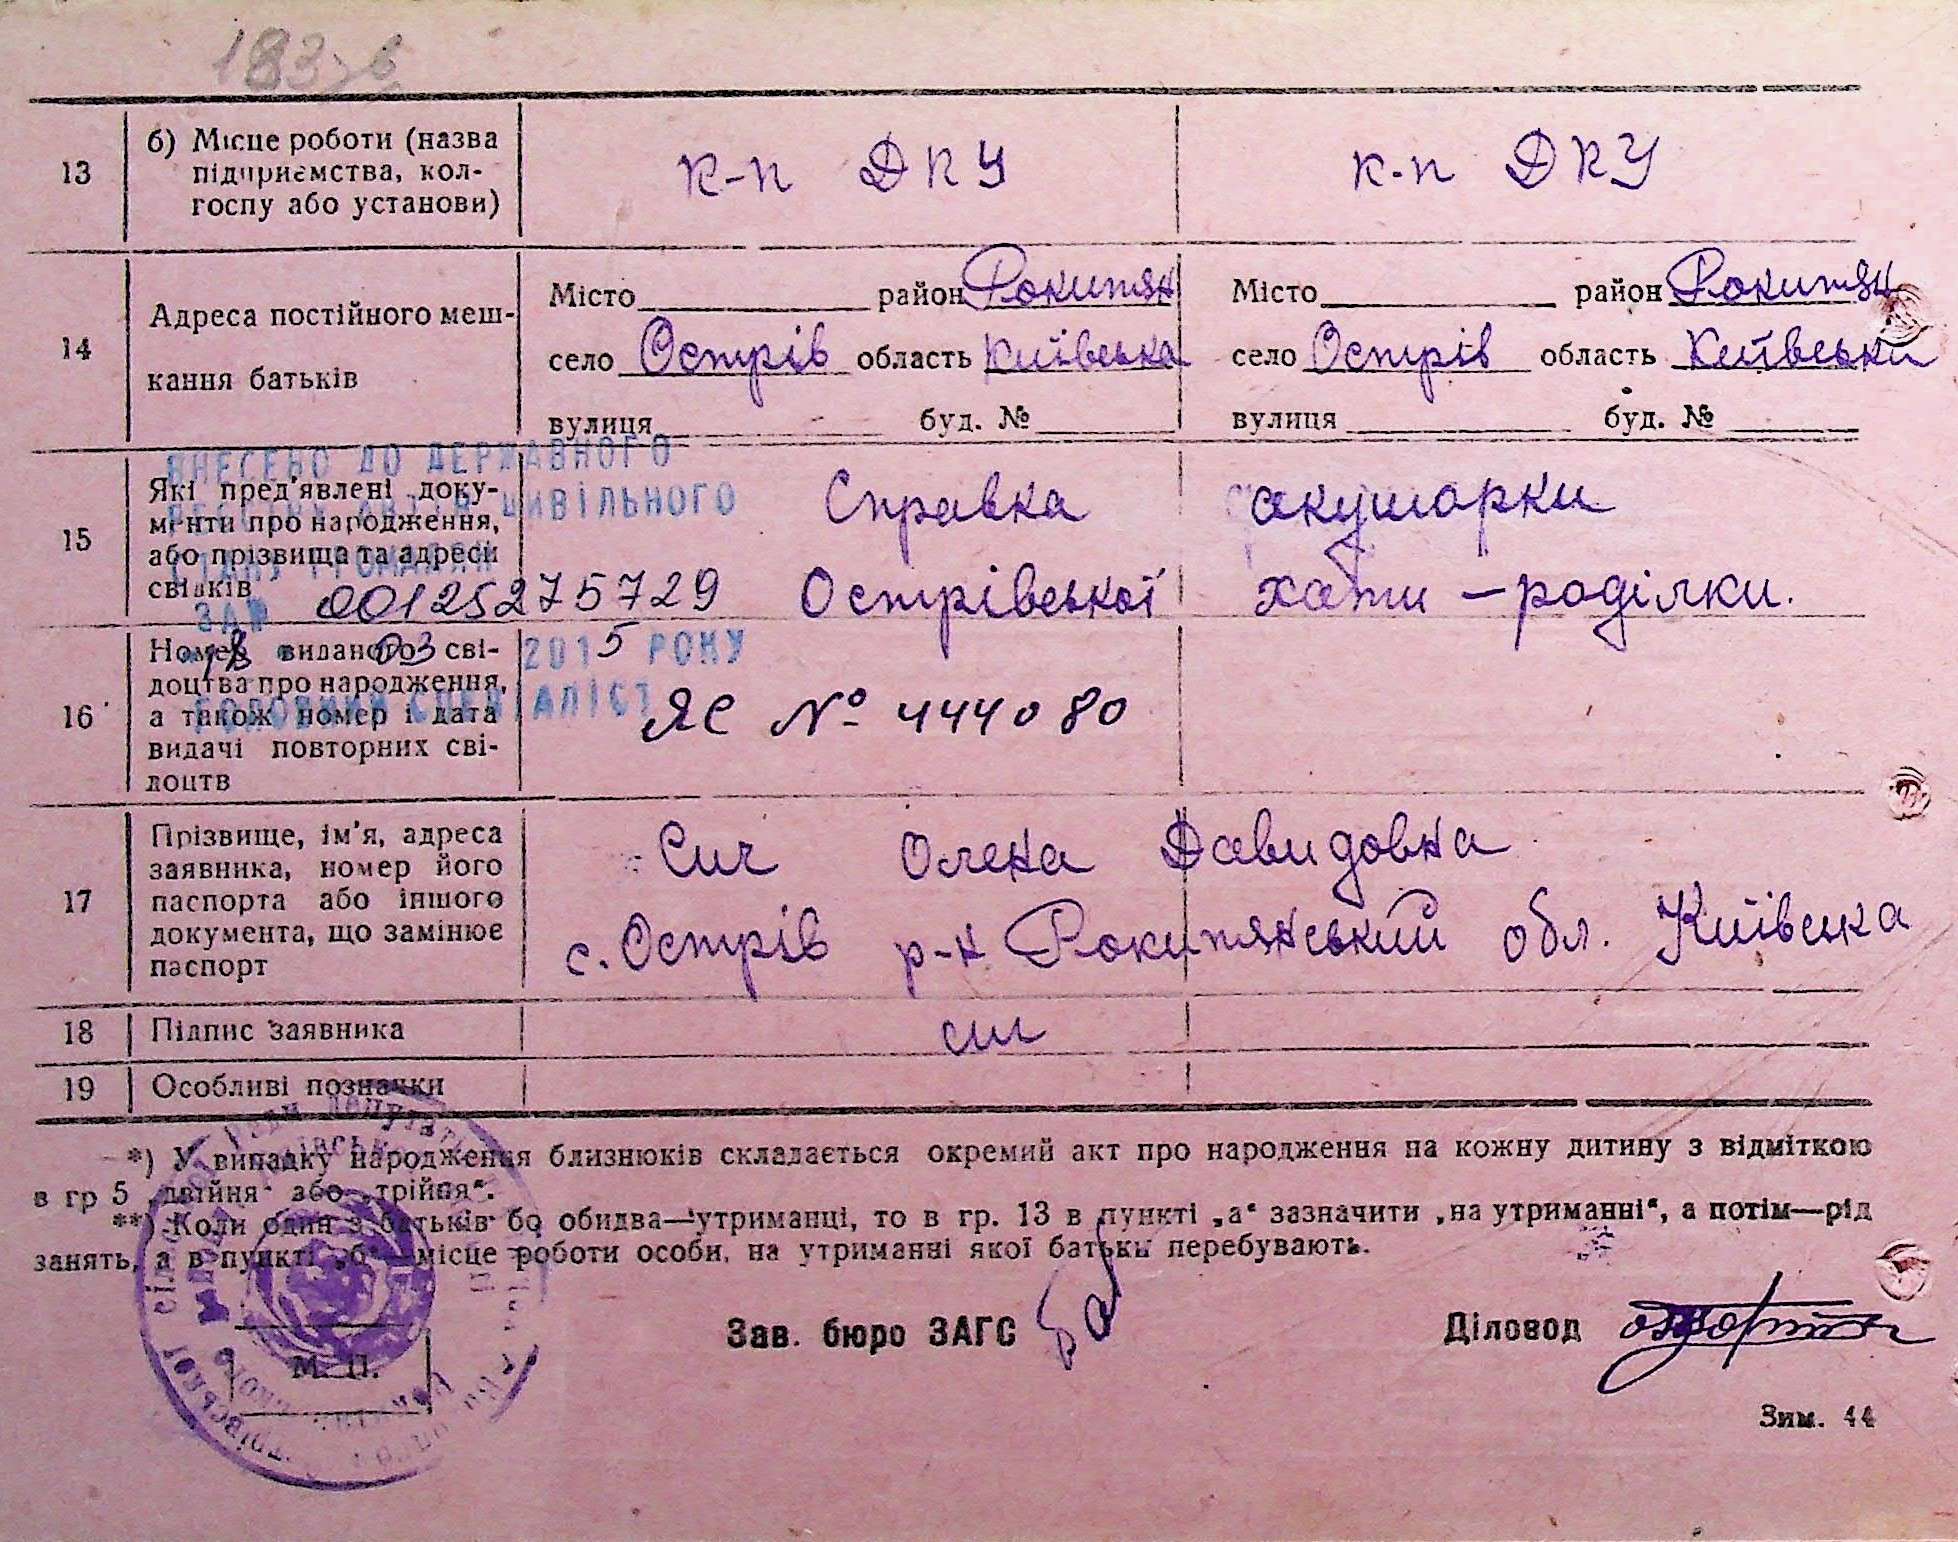 183
13 б) Місце роботи (назва підприємства, колгоспу або установи) к-п ДКУ к-п ДКУ
14 Адреса постійного мешкання батьків
Місто район Рокитян Місто район Рокитян
село Острів область Київська село Острів область Київська
вулиця буд. № вулиця буд. №
ВНЕСЕНО ДО ДЕРЖАВНОГО
РЕЄСТРУ АКТІВ ЦИВІЛЬНОГО
СТАНУ ГРОМАДЯН
ЗА № 00125275729
18 03 2015 РОКУ
ГОЛОВНИЙ СПЕЦІАЛІСТ
15 Які пред'явлені документи про народження, або прізвища та адреси свідків
Справка акушорки
Острівської хати-роділки.
16 Номер виданого свідоцтва про народження, а також номер і дата видачі повторних свідоцтв
ЯС № 444080
17 Прізвище, ім'я, адреса заявника, номер його паспорта або іншого документа, що замінює паспорт
Сич Олена Давидовна
с. Острів р-н Рокитянський обл. Київська
18 Підпис заявника сич
19 Особливі позначки
*) У випадку народження близнюків складається окремий акт про народження на кожну дитину з відміткою
в гр 5 „двійня" або „трійня".
**) Коли один з батьків бо обидва—утриманці, то в гр. 13 в пункті „а" зазначити „на утриманні", а потім—рід
занять, а в пункті „б" місце роботи особи, на утриманні якої батьки перебувають.
Зав. бюро ЗАГС Діловод
М. П.
Зим. 44